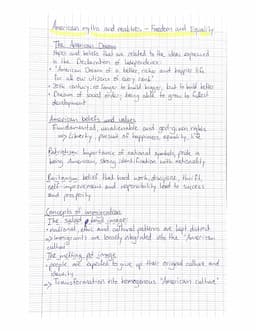 American myths and realities - Freedom and Equality
The American Dream
Hopes and beliefs that are related to the ideas expressed
in the Declaration of Independence:
• "American Dream of a better, richer and happier life
for all our citizens of every rank"
• 20th century: no longer to build bigger, but to build better
• Dream of social order; being able to grow to fullest
development
American beliefs and values
Fundamental, unalienable and god-given rights
=> Liberty, pursuit of happiness, equality, life
Patriotism: Importance of national symbols, pride in
being American, strong identification with nationality
Puritanism: belief that hard work, discipline, thrift,
self-improvement and responsibility lead to success
and prosperity
Concepts of immigration
The salad bowl image:
• national, ethnic and cultural patterns are kept distinct
=> immigrants are loosely integrated into the "American
culture"
The melting pot image
• people are expected to give up their original culture and
identity
=> Transformation into homogenous "American culture"